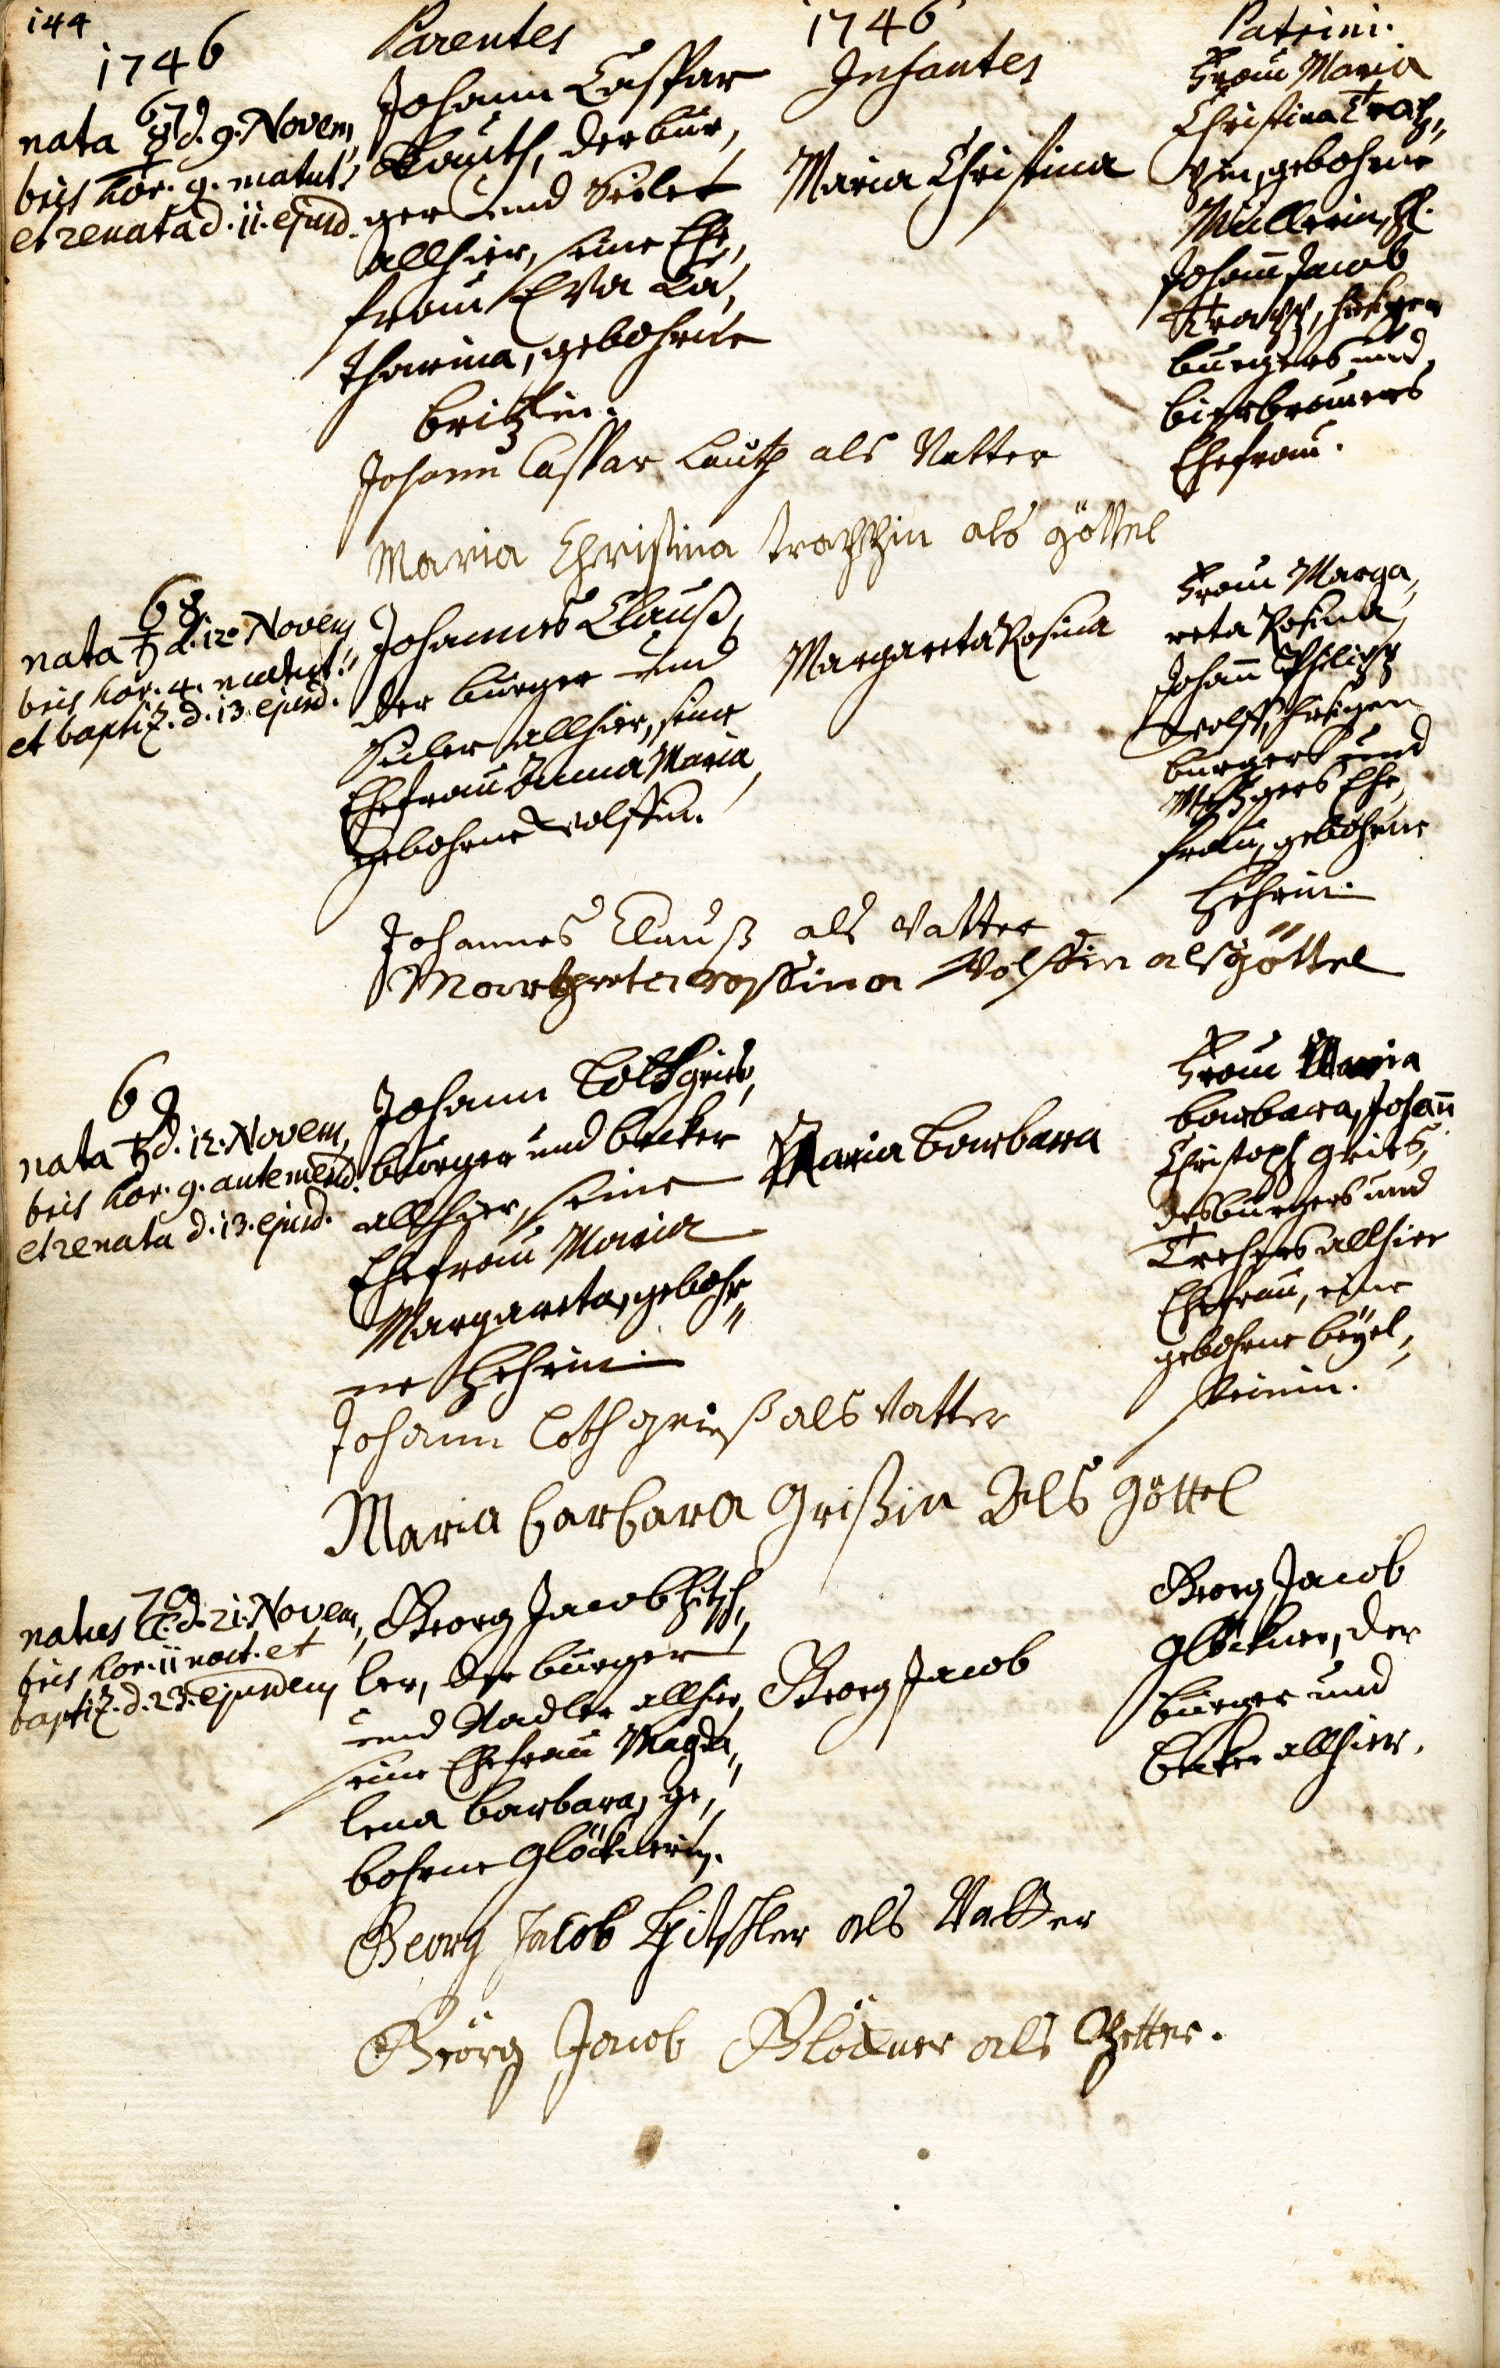 144
1746
Parentes
1746
Infantes
Patrini.
67.
nata ☿ d. 9. Novem,
bris hor. 9. matut:
et renata d. 11. ejusd.
Johann Caspar
Lauth, der bur,
ger und Seiler
allhier, seine Ehe,
frau Eva Ca,
tharina, gebohrne
Maria Christina
Frau Maria
Christina
gebohrne
Müllerin, H.
Johann Jacob
hiesigen
burgers und
bierbrauers
Ehefrau.
Johann Caspar Lauth als Vatter
Maria Christina als Göttel
68.
nata ♄ d. 12. Novem,
bris hor. 4. matut:
et baptiz. d. 13. ejusd.
Johannes Clauß,
der burger und
Seiler allhier, seine
Ehefrau Anna Maria
gebohrne Wolffin.
Margareta Rosina
Frau Marga,
reta Rosina,
Johann Philipp
Wolff, hiesigen
burgers und
Metzgers Ehe,
frau, gebohrne
Johannes Clauß als Vatter
Wolffin als Göttel
69
nata ♄ d. 12. Novem,
bris hor. 9. antemerid.
et renata d. 13. ejusd.
Johann Loth Gries,
burger und becker
allhier, seine
Ehefrau Maria
Margareta, gebohr,,
ne
Maria Barbara
Frau Maria
barbara, Johann
Christoph Gries,
des burgers und
allhier
Ehefrau, eine
gebohrne beyel,,
steinin.
Johann Loth Grieß als Vatter
Maria barbara Grißin Als Göttel
70
natus ☾ d. 21. Novem,
bris hor. 11 noct. et
baptiz. d. 23. ejusdem
Georg Jacob Hitsch,
ler, der burger
und Nadler allhier,
seine Ehefrau Magda,,
lena barbara, ge,,
bohrne Glöcknerin.
Georg Jacob
Georg Jacob
Glöckner, der
burger und
becker allhier.
Georg Jacob Hitschler als Vatter
Geörg Jacob Glöckner als Petter.